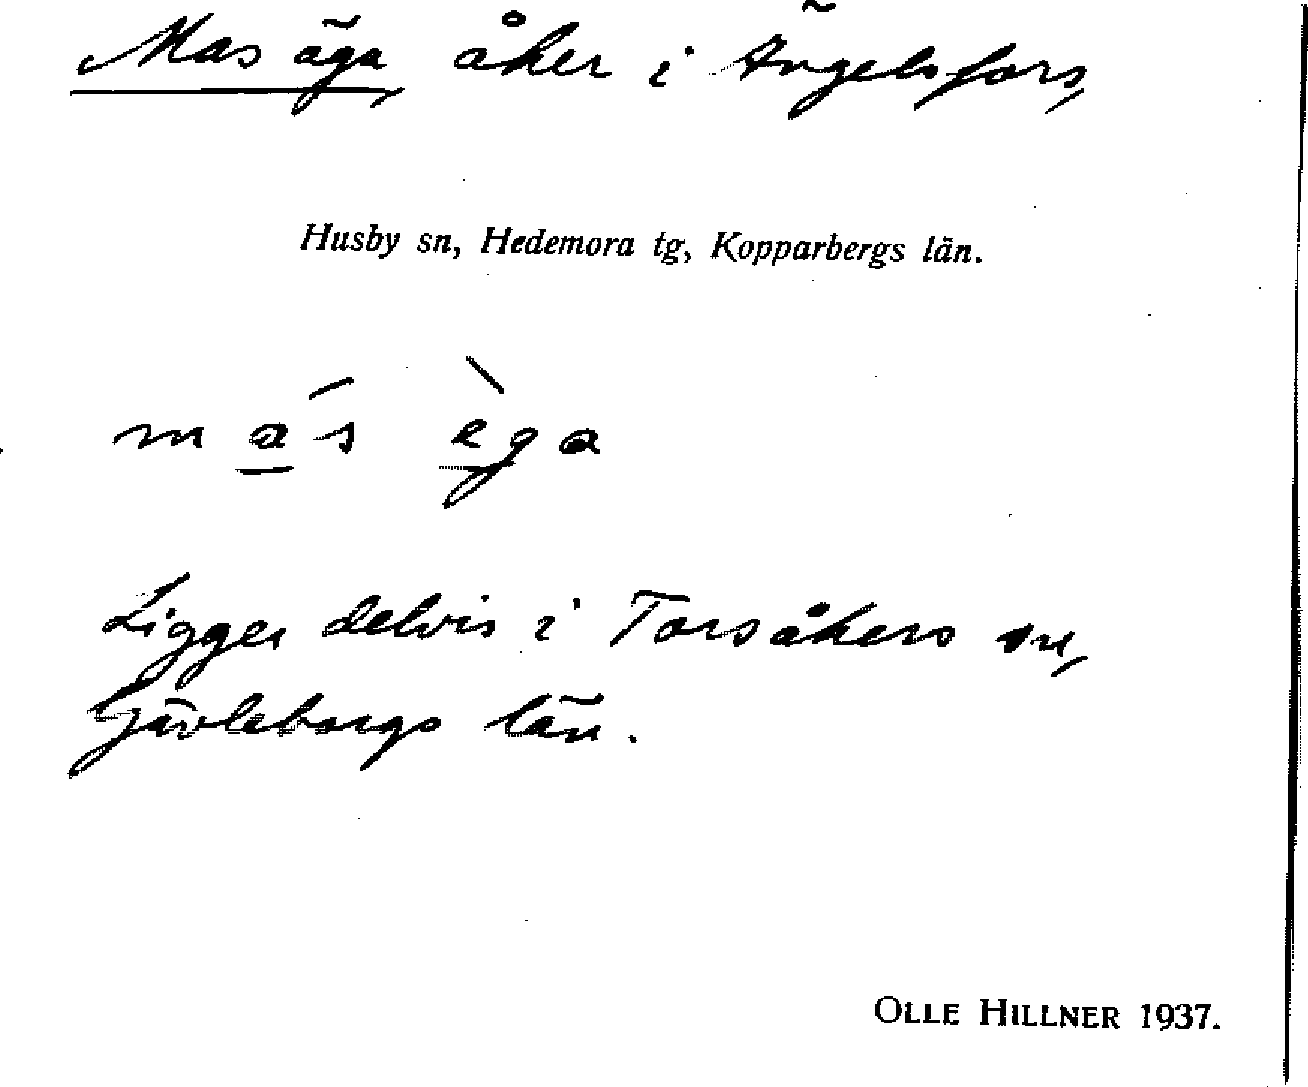 Mas äga, åker i Ängelsfors,
Husby sn, Hedemora tg, Kopparbergs län.
ma´s è̱ga
Ligger delvis i Torsåkers sn,
Gävleborgs län.
OLLE HILLNER 1937.